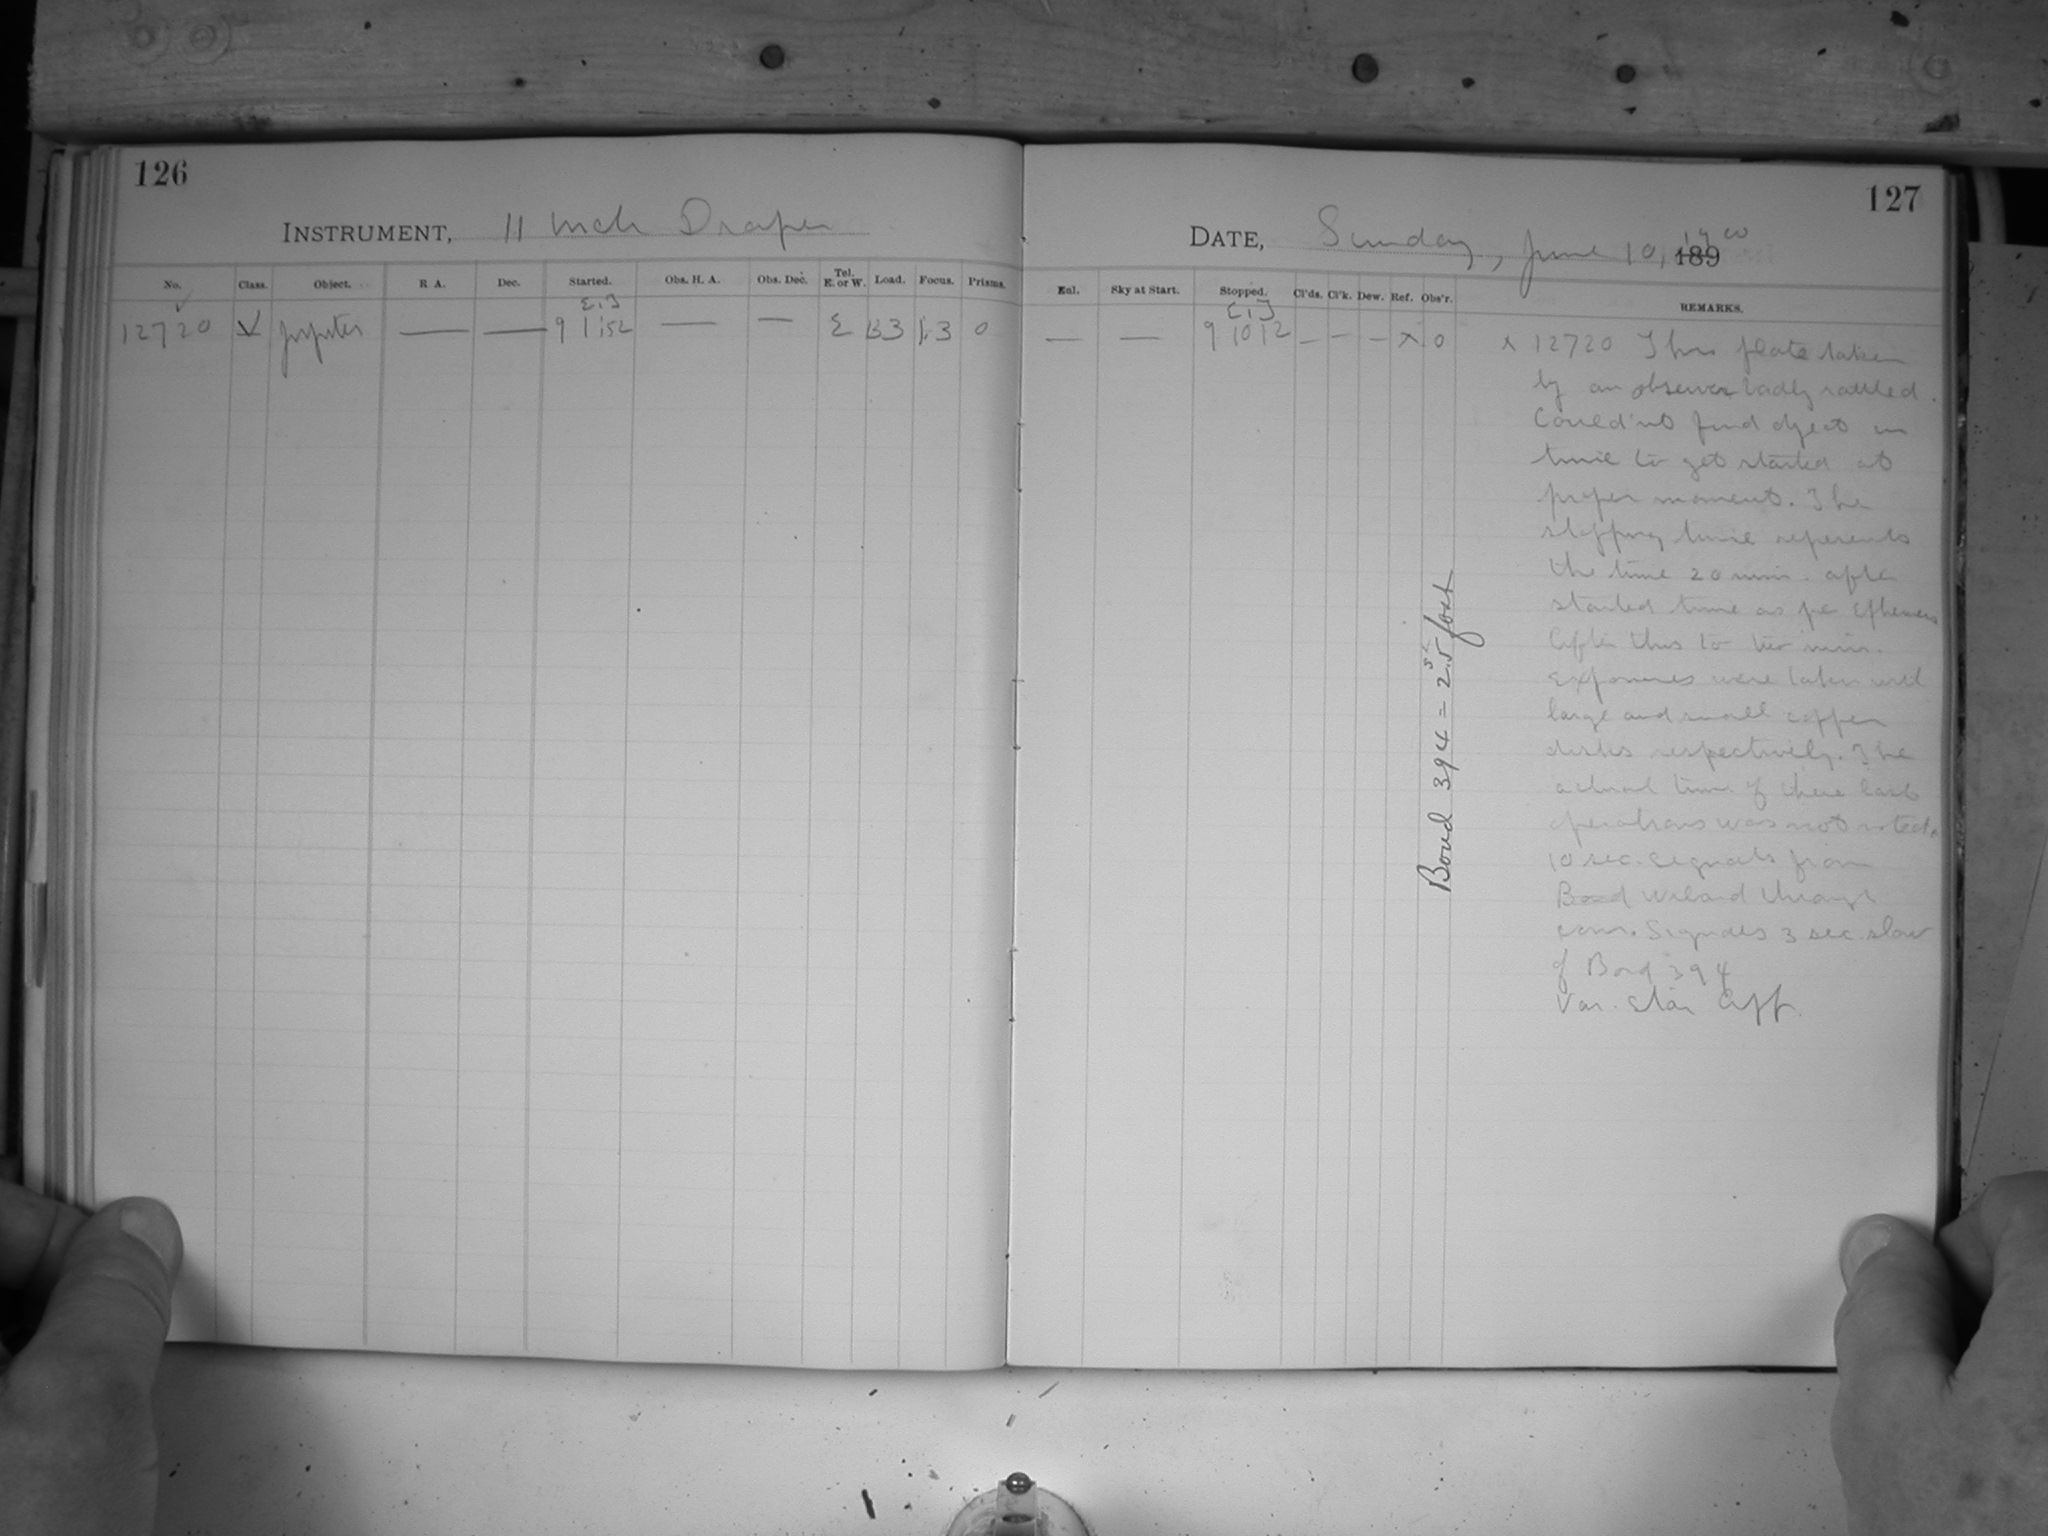 126
INSTRUMENT, 11 inch Draper
No. Class. Object. R A. Dec. Started. Obs. H. A. Obs. Dec. Tel. E. or W. Load. Focus. Prisms.
12720 Jupiter — — 9 1 52 — — E B3 1.3 0
127
DATE, Sunday, June 10, 189 1900
Enl. Sky at Start. Stopped. Cl'ds. Cl'k. Dew. Ref. Obs'r. REMARKS.
— — 9 10 12 — — — X O
x 12720 This plate taken
by an observer badly rattled.
Could'nt find object in
time to get started at
proper moment. The
stopping time represents
the time 20 min. after
started time as per Ephemeris
After this to two min.
exposures were taken with
large and small copper
disks respectively. The
actual time of these last
operations was not noted.
10 sec. signals from
Bond Willard through
comr. Signals 3 sec. slow
of Bond 394
Var. Star App.
Bond 394 = 2.5s fast